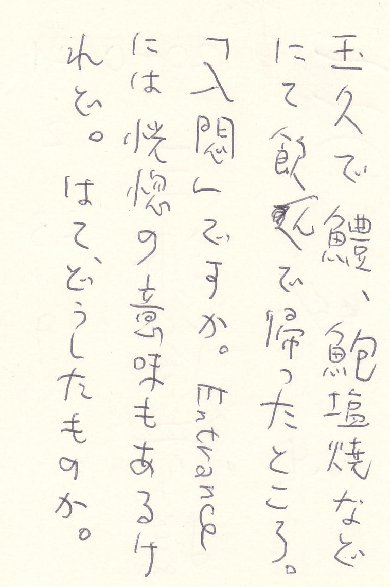 玉久で鱧、鮑塩焼など
にて飲んで帰ったところ。
「入悶」ですか。Entrance
には恍惚の意味もあるけ
れど。はて、どうしたものか。